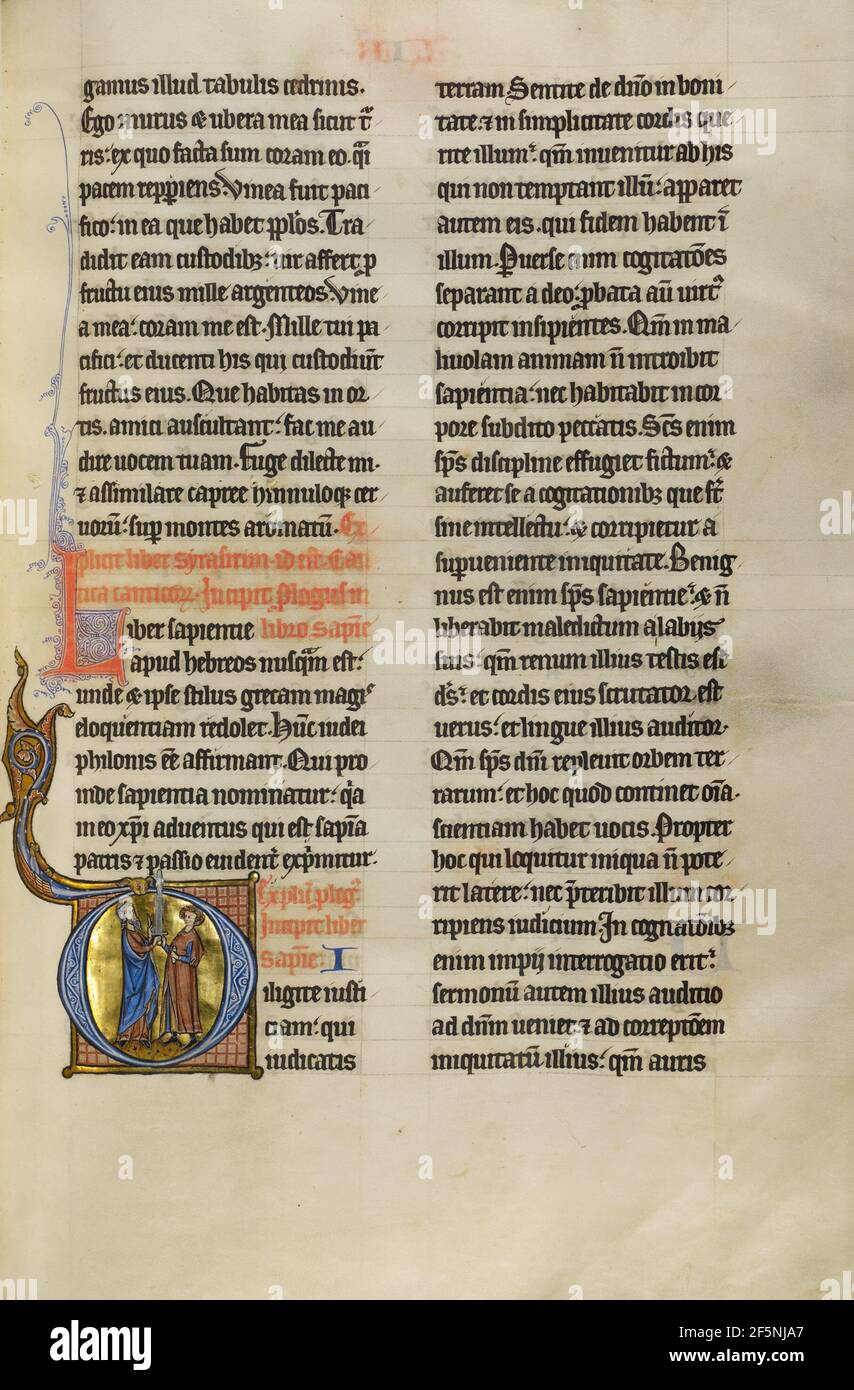 gamus illud tabulis cedrinis.
Ego murus & ubera mea sicut tͬ
ris: ex quo facta sum coram eo. qͣi
pacem repꝑiens. Vinea fuit paci
fico: in ea que habet ppl̓os. Tra
didit eam custodibꝫ: uir affert ꝓ
fructu eius mille argenteos. Vine
a mea: coram me est. Mille tui pa
cifici: et ducenti his qui custodiūt
fructus eius. Que habitas in or
tis. amici auscultant: fac me au
dire uocem tuam. Fuge dilecte mi.
⁊ assimilare capree hinnuloqꝫ cer
uorū: suꝑ montes aromatū. Ex
plicit liber syrasirim id est Can
tica canticoꝝ. Incipit ꝓlogus in
Liber sapientie libro sapīe
apud hebreos nusqͣm est:
unde & ipse stilus grecam magiˢ
eloquentiam redolet. Hūc iudei
philonis eē affirmant. Qui pro
inde sapientia nominatur: qͣa
in eo xp̄i aduentus qui est sapīa
patris ⁊ passio euident̓ exp̄mitur.
Explic̄ ꝓlog.
Incipit liber
Sapīe. I
Diligite iusti
ciam: qui
iudicatis
terram Sentite de dn̄o in boni
tate. ⁊ in simplicitate cordis que
rite illum: qm̄ inuenitur ab his
qui non temptant illū: apparet
autem eis. qui fidem habent ī
illum. Ꝑuerse enim cogitatōes
separant a deo: ꝓbata au̅ uirtͧ
corripit insipientes. Qm̄ in ma
liuolam animam n̄ introibit
sapientia: nec habitabit in cor
pore subdito peccatis. Sc̄s enim
sp̄s discipline effugiet fictum: &
auferet se a cogitationibꝫ que st̄
sine intellectu: & corripietur a
suꝑueniente iniquitate. Benig
nus est enim sp̄s sapientie: & n̄
liberabit maledictum a labijs
suis: qm̄ renum illius testis est
ds̄: et cordis eius scrutator est
uerus: et lingue illius auditor.
Qm̄ sp̄s dn̄i repleuit orbem ter
rarum: et hoc quod continet oīa.
scientiam habet uocis. Propter
hoc qui loquitur iniqua n̄ pote
rit latere: nec p̄teribit illum cor
ripiens iudicium. In cogitatōibꝫ
enim impij interrogatio erit:
sermonū autem illius auditio
ad dn̄m ueniet ⁊ ad correptōem
iniquitatū illius: qm̄ auris
alamy
Image ID: 2F5NJA7
www.alamy.com